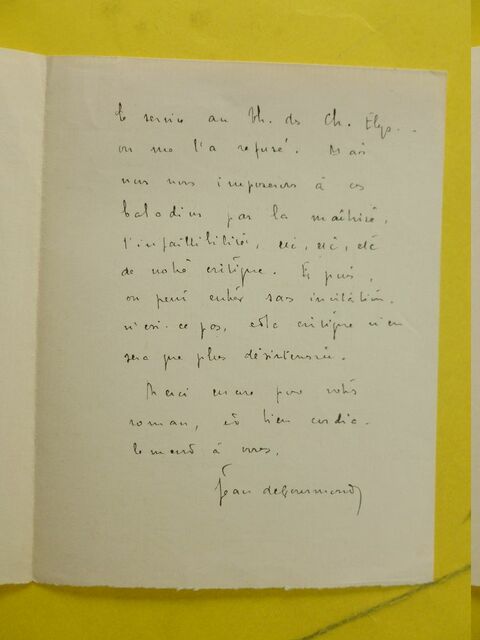 le service au th. des Ch. Elys...
on me l'a refusé. Mais
nous nous imposerons à ces
baladins par la maîtrise,
l'infaillibilité, etc, etc, etc
de notre critique. Et puis,
on peut entrer sans invitation,
n'est-ce pas, et la critique n'en
sera que plus désintéressée.
Merci encore pour votre
roman, et bien cordia-
lement à vous,
Jean de Gourmont